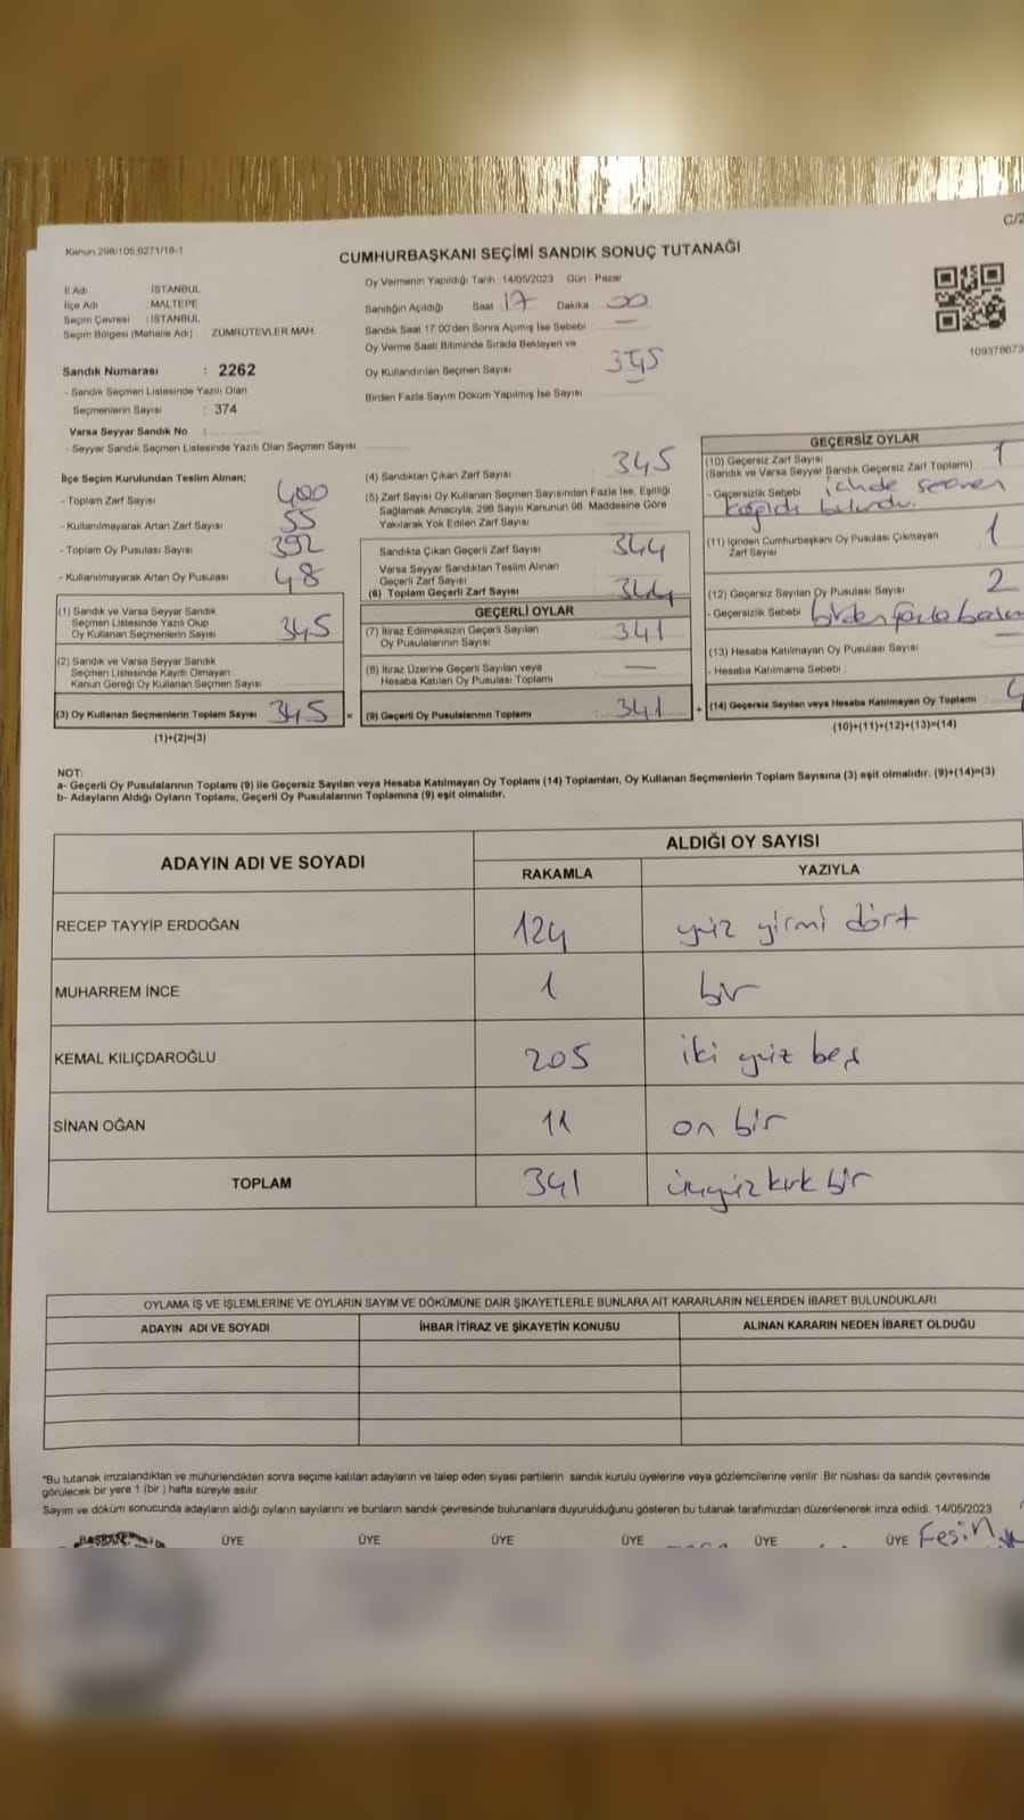 Kanun 298/105;6271/16-1
C/2
CUMHURBAŞKANI SEÇİMİ SANDIK SONUÇ TUTANAĞI
İl Adı : İSTANBUL
İlçe Adı : MALTEPE
Seçim Çevresi : İSTANBUL
Seçim Bölgesi (Mahalle Adı) : ZÜMRÜTEVLER MAH.
Sandık Numarası : 2262
- Sandık Seçmen Listesinde Yazılı Olan
Seçmenlerin Sayısı : 374
Varsa Seyyar Sandık No :
- Seyyar Sandık Seçmen Listesinde Yazılı Olan Seçmen Sayısı
Oy Vermenin Yapıldığı Tarih : 14/05/2023 Gün : Pazar
Sandığın Açıldığı Saat 17 Dakika 00
Sandık Saat 17:00'den Sonra Açılmış İse Sebebi —
Oy Verme Saati Bitiminde Sırada Bekleyen ve
Oy Kullandırılan Seçmen Sayısı 345
Birden Fazla Sayım Döküm Yapılmış İse Sayısı
İlçe Seçim Kurulundan Teslim Alınan:
- Toplam Zarf Sayısı 400
- Kullanılmayarak Artan Zarf Sayısı 55
- Toplam Oy Pusulası Sayısı 392
- Kullanılmayarak Artan Oy Pusulası 48
(1) Sandık ve Varsa Seyyar Sandık
Seçmen Listesinde Yazılı Olup
Oy Kullanan Seçmenlerin Sayısı 345
(2) Sandık ve Varsa Seyyar Sandık
Seçmen Listesinde Kayıtlı Olmayan
Kanun Gereği Oy Kullanan Seçmen Sayısı
(3) Oy Kullanan Seçmenlerin Toplam Sayısı 345 =
(1)+(2)=(3)
(4) Sandıktan Çıkan Zarf Sayısı 345
(5) Zarf Sayısı Oy Kullanan Seçmen Sayısından Fazla İse, Eşitliği
Sağlamak Amacıyla, 298 Sayılı Kanunun 98. Maddesine Göre
Yakılarak Yok Edilen Zarf Sayısı
Sandıkta Çıkan Geçerli Zarf Sayısı 344
Varsa Seyyar Sandıktan Teslim Alınan
Geçerli Zarf Sayısı
(6) Toplam Geçerli Zarf Sayısı 344
GEÇERLİ OYLAR
(7) İtiraz Edilmeksizin Geçerli Sayılan
Oy Pusulalarının Sayısı 341
(8) İtiraz Üzerine Geçerli Sayılan veya
Hesaba Katılan Oy Pusulası Toplamı —
(9) Geçerli Oy Pusulalarının Toplamı 341 +
GEÇERSİZ OYLAR
(10) Geçersiz Zarf Sayısı 1
(Sandık ve Varsa Seyyar Sandık Geçersiz Zarf Toplamı)
- Geçersizlik Sebebi içinde seçmen
kağıdı bulundu.
(11) İçinden Cumhurbaşkanı Oy Pusulası Çıkmayan
Zarf Sayısı 1
(12) Geçersiz Sayılan Oy Pusulası Sayısı 2
- Geçersizlik Sebebi birden fazla
(13) Hesaba Katılmayan Oy Pusulası Sayısı —
- Hesaba Katılmama Sebebi :
(14) Geçersiz Sayılan veya Hesaba Katılmayan Oy Toplamı 4
(10)+(11)+(12)+(13)=(14)
NOT:
a- Geçerli Oy Pusulalarının Toplamı (9) ile Geçersiz Sayılan veya Hesaba Katılmayan Oy Toplamı (14) Toplamları, Oy Kullanan Seçmenlerin Toplam Sayısına (3) eşit olmalıdır. (9)+(14)=(3)
b- Adayların Aldığı Oyların Toplamı, Geçerli Oy Pusulalarının Toplamına (9) eşit olmalıdır.
ADAYIN ADI VE SOYADI ALDIĞI OY SAYISI
RAKAMLA YAZIYLA
RECEP TAYYİP ERDOĞAN 124 yüz yirmi dört
MUHARREM İNCE 1 bir
KEMAL KILIÇDAROĞLU 205 iki yüz beş
SİNAN OĞAN 11 on bir
TOPLAM 341 üçyüz kırk bir
OYLAMA İŞ VE İŞLEMLERİNE VE OYLARIN SAYIM VE DÖKÜMÜNE DAİR ŞİKAYETLERLE BUNLARA AİT KARARLARIN NELERDEN İBARET BULUNDUKLARI
ADAYIN ADI VE SOYADI İHBAR İTİRAZ VE ŞİKAYETİN KONUSU ALINAN KARARIN NEDEN İBARET OLDUĞU
"Bu tutanak imzalandıktan ve mühürlendikten sonra seçime katılan adayların ve talep eden siyasi partilerin sandık kurulu üyelerine veya gözlemcilerine verilir. Bir nüshası da sandık çevresinde
görülecek bir yere 1 (bir ) hafta süreyle asılır.
Sayım ve döküm sonucunda adayların aldığı oyların sayılarını ve bunların sandık çevresinde bulunanlara duyurulduğunu gösteren bu tutanak tarafımızdan düzenlenerek imza edildi. 14/05/2023
BAŞKAN ÜYE ÜYE ÜYE ÜYE ÜYE ÜYE